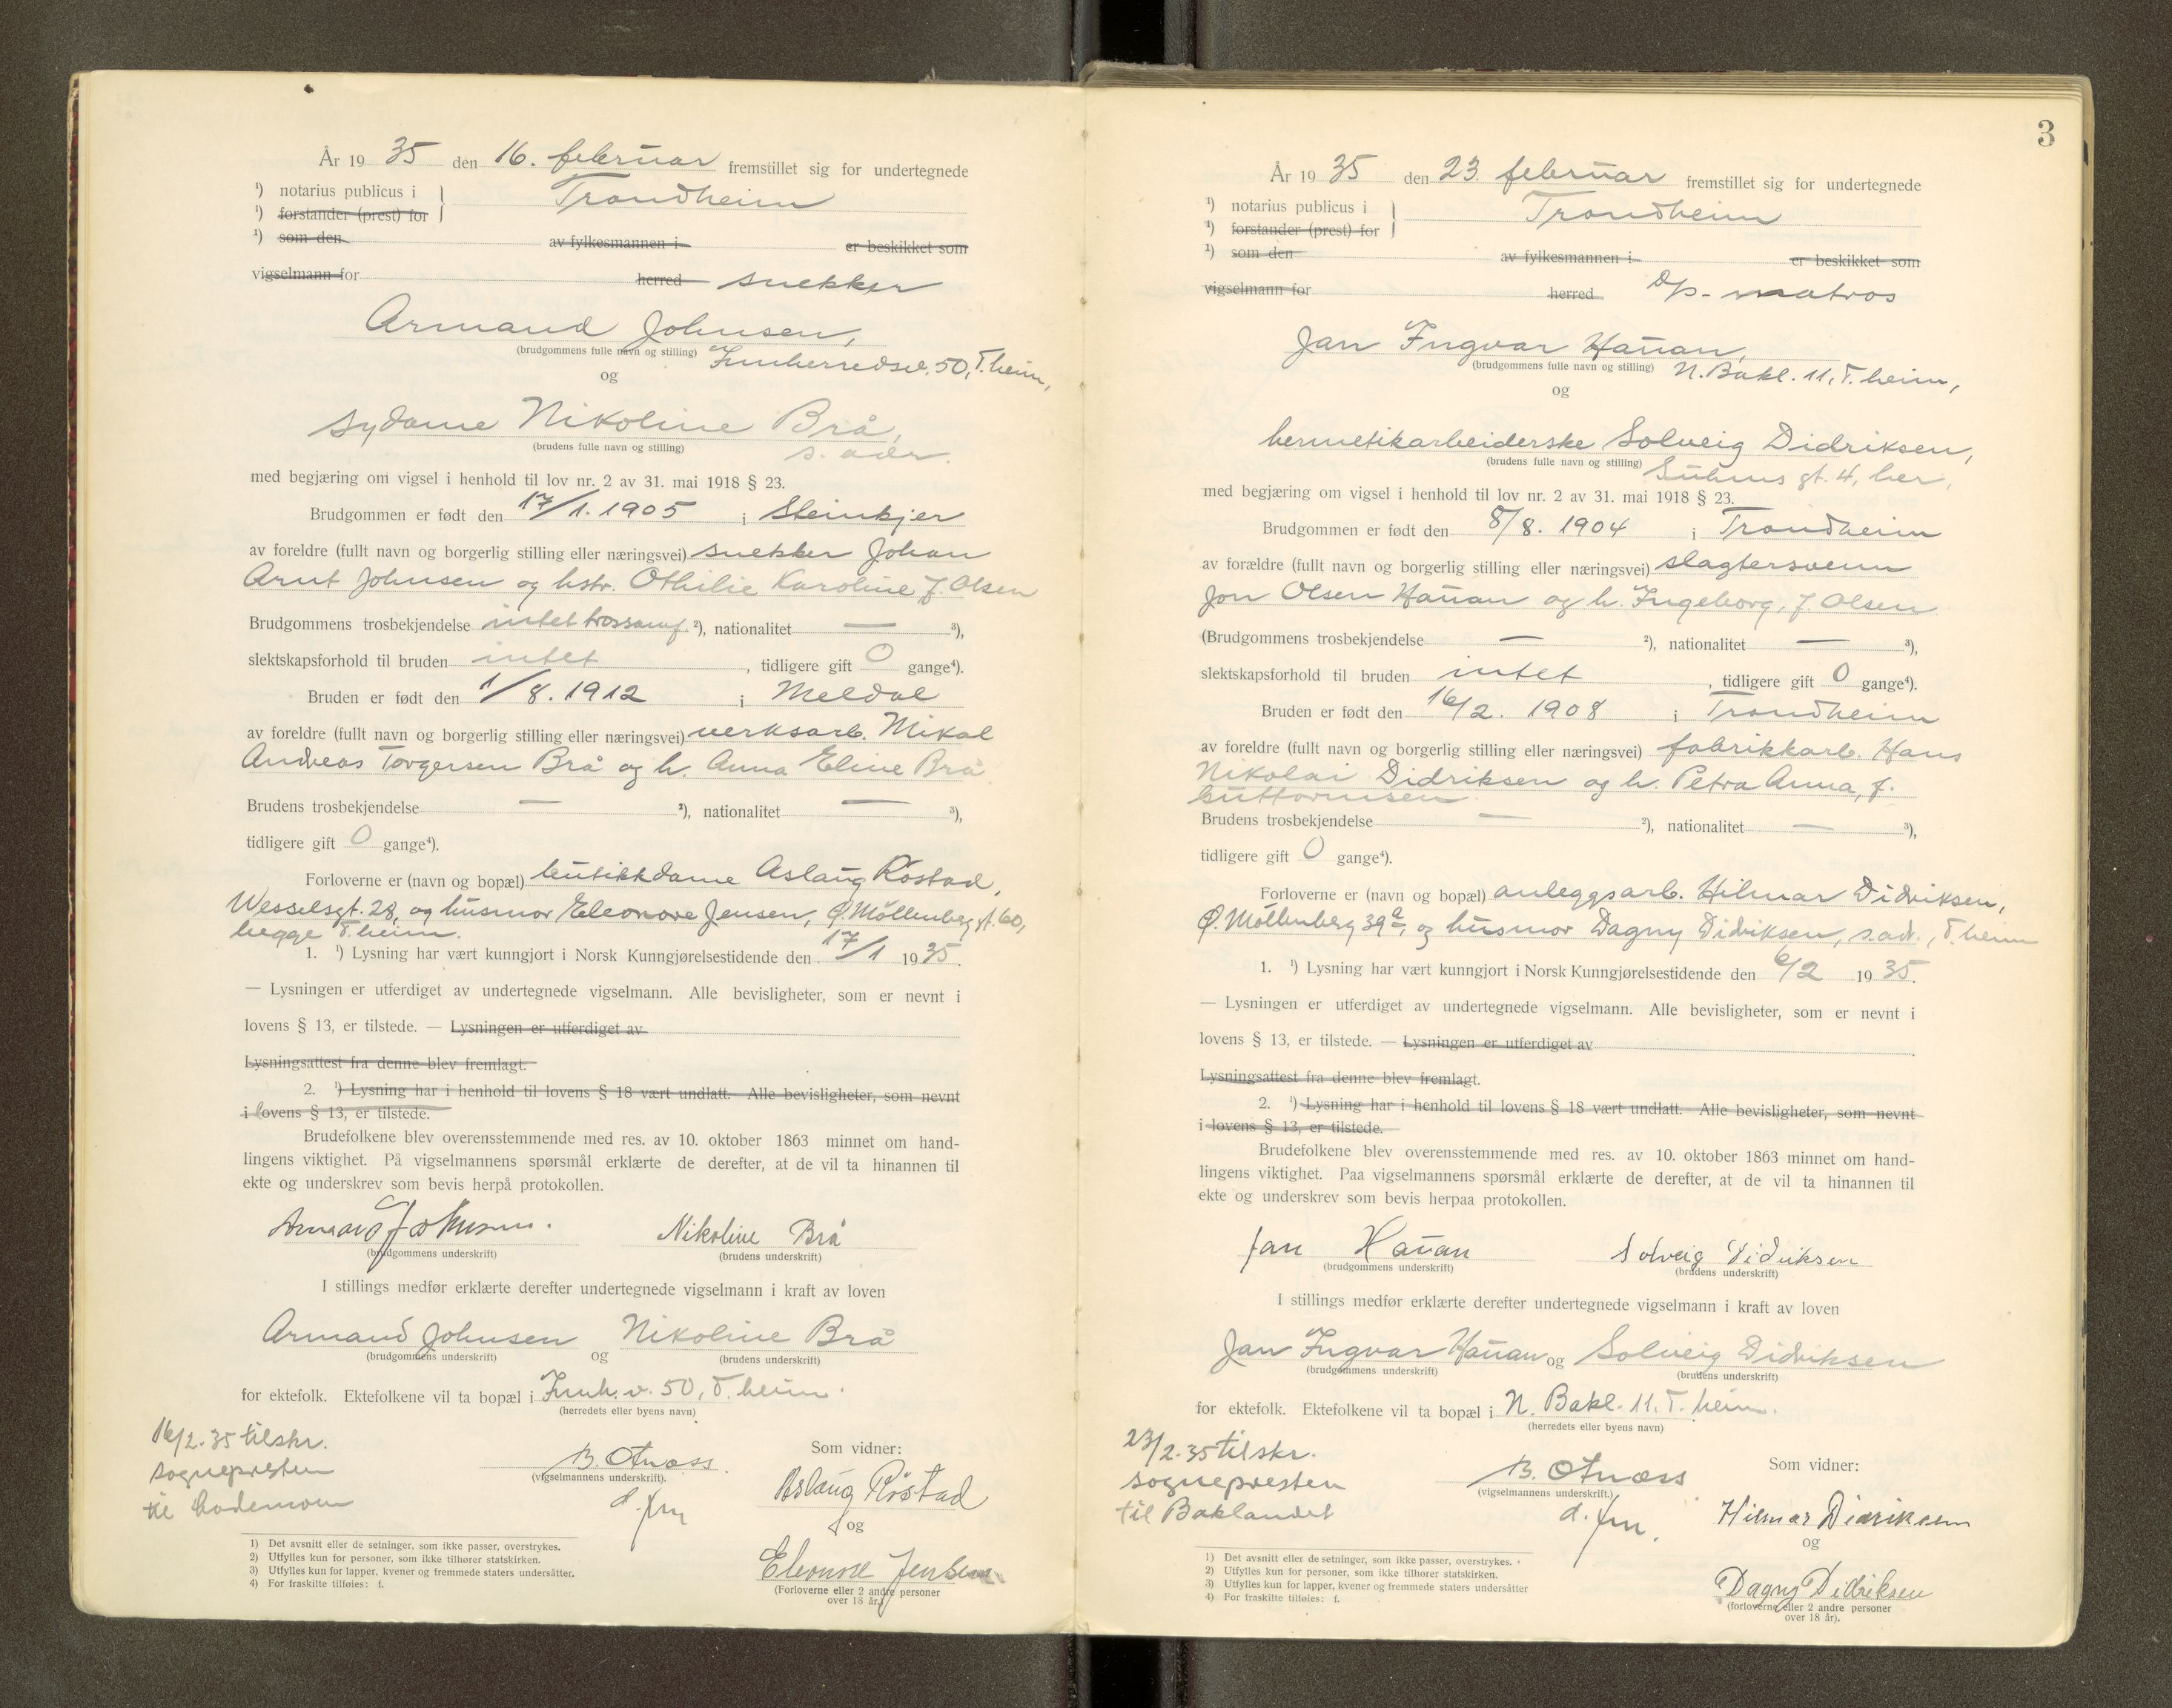 År 19 35 den 16. februar fremstillet sig for undertegnede
¹) notarius publicus i } Trondheim
¹) forstander (prest) for
¹) som den av fylkesmannen i er beskikket som
vigselmann for herred snekker
Armand Johnsen,
(brudgommens fulle navn og stilling) Innherredsv. 50, T.heim,
og
sydame Nikoline Brå,
(brudens fulle navn og stilling) s. adr.
med begjæring om vigsel i henhold til lov nr. 2 av 31. mai 1918 § 23.
Brudgommen er født den 17/1. 1905 i Steinkjer
av foreldre (fullt navn og borgerlig stilling eller næringsvei) snekker Johan
Arnt Johnsen og hstr. Othilie Karoline f. Olsen
Brudgommens trosbekjendelse intet trossamf. ²), nationalitet — ³),
slektskapsforhold til bruden intet, tidligere gift 0 gange⁴).
Bruden er født den 1/8. 1912 i Meldal
av foreldre (fullt navn og borgerlig stilling eller næringsvei) verksarb. Mikal
Andreas Torgersen Brå og h. Anna Eline Brå
Brudens trosbekjendelse — ²), nationalitet — ³),
tidligere gift 0 gange⁴).
Forloverne er (navn og bopæl) butikkdame Aslaug Røstad,
Wesselsgt. 28, og husmor Eleonore Jensen, Ø. Möllenberg gt. 60,
begge T.heim.
1. ¹) Lysning har vært kunngjort i Norsk Kunngjørelsestidende den 17/1 19 35.
— Lysningen er utferdiget av undertegnede vigselmann. Alle bevisligheter, som er nevnt i
lovens § 13, er tilstede. — Lysningen er utferdiget av
Lysningsattest fra denne blev fremlagt.
2. ¹) Lysning har i henhold til lovens § 18 vært undlatt. Alle bevisligheter, som nevnt
i lovens § 13, er tilstede.
Brudefolkene blev overensstemmende med res. av 10. oktober 1863 minnet om hand-
lingens viktighet. På vigselmannens spørsmål erklærte de derefter, at de vil ta hinannen til
ekte og underskrev som bevis herpå protokollen.
Armand Johnsen. Nikoline Brå
(brudgommens underskrift) (brudens underskrift)
I stillings medfør erklærte derefter undertegnede vigselmann i kraft av loven
Armand Johnsen og Nikoline Brå
(brudgommens underskrift) (brudens underskrift)
for ektefolk. Ektefolkene vil ta bopæl i Innh. v. 50, T.heim.
(herredets eller byens navn)
16/2. 35 tilskr.
sognepresten
til Lademoen
B. Otnæss.
(vigselmannens underskrift).
d. fm
Som vidner:
Aslaug Röstad
og
Eleonore Jensen
(Forloverne eller 2 andre personer
over 18 år.)
1) Det avsnitt eller de setninger, som ikke passer, overstrykes.
2) Utfylles kun for personer, som ikke tilhører statskirken.
3) Utfylles kun for lapper, kvener og fremmede staters undersåtter.
4) For fraskilte tilføies: f.
3
År 19 35 den 23. februar fremstillet sig for undertegnede
¹) notarius publicus i } Trondheim
¹) forstander (prest) for
¹) som den av fylkesmannen i er beskikket som
vigselmann for herred D/s- matros
Jan Ingvar Hauan,
(brudgommens fulle navn og stilling) N. Bakl. 11, T.heim,
og
hermetikarbeiderske Solveig Didriksen,
(brudens fulle navn og stilling) Suhms gt. 4, her,
med begjæring om vigsel i henhold til lov nr. 2 av 31. mai 1918 § 23.
Brudgommen er født den 8/8. 1904 i Trondheim
av forældre (fullt navn og borgerlig stilling eller næringsvei) slagtersvenn
Jon Olsen Hauan og h. Ingeborg, f. Olsen
(Brudgommens trosbekjendelse — ²), nationalitet — ³),
slektskapsforhold til bruden intet, tidligere gift 0 gange⁴).
Bruden er født den 16/2. 1908 i Trondheim
av foreldre (fullt navn og borgerlig stilling eller næringsvei) fabrikkarb. Hans
Nikolai Didriksen og h. Petra Anna, f.
Guttormsen.
Brudens trosbekjendelse — ²), nationalitet — ³),
tidligere gift 0 gange⁴).
Forloverne er (navn og bopæl) anleggsarb. Hilmar Didriksen,
Ø. Möllenberg 39 a, og husmor Dagny Didriksen, s.adr., T.heim
1. ¹) Lysning har vært kunngjort i Norsk Kunngjørelsestidende den 6/2 19 35.
— Lysningen er utferdiget av undertegnede vigselmann. Alle bevisligheter, som er nevnt i
lovens § 13, er tilstede. — Lysningen er utferdiget av
Lysningsattest fra denne blev fremlagt.
2. ¹) Lysning har i henhold til lovens § 18 vært undlatt. Alle bevisligheter, som nevnt
i lovens § 13, er tilstede.
Brudefolkene blev overensstemmende med res. av 10. oktober 1863 minnet om hand-
lingens viktighet. Paa vigselmannens spørsmål erklærte de derefter, at de vil ta hinannen til
ekte og underskrev som bevis herpaa protokollen.
Jan Hauan Solveig Didriksen
(brudgommens underskrift) (brudens underskrift)
I stillings medfør erklærte derefter undertegnede vigselmann i kraft av loven
Jan Ingvar Hauan og Solveig Didriksen
(brudgommens underskrift) (brudens underskrift)
for ektefolk. Ektefolkene vil ta bopæl i N. Bakl. 11. T.heim.
(herredets eller byens navn)
23/2. 35 tilskr.
sognepresten
til Baklandet
B. Otnæss
(vigselmannens underskrift.)
d. fm.
Som vidner:
Hilmar Didriksen
og
Dagny Didriksen
(forloverne eller 2 andre personer
over 18 år).
1) Det avsnitt eller de setninger, som ikke passer, overstrykes.
2) Utfylles kun for personer, som ikke tilhører statskirken.
3) Utfylles kun for lapper, kvener og fremmede staters undersåtter
4) For fraskilte tilføies: f.